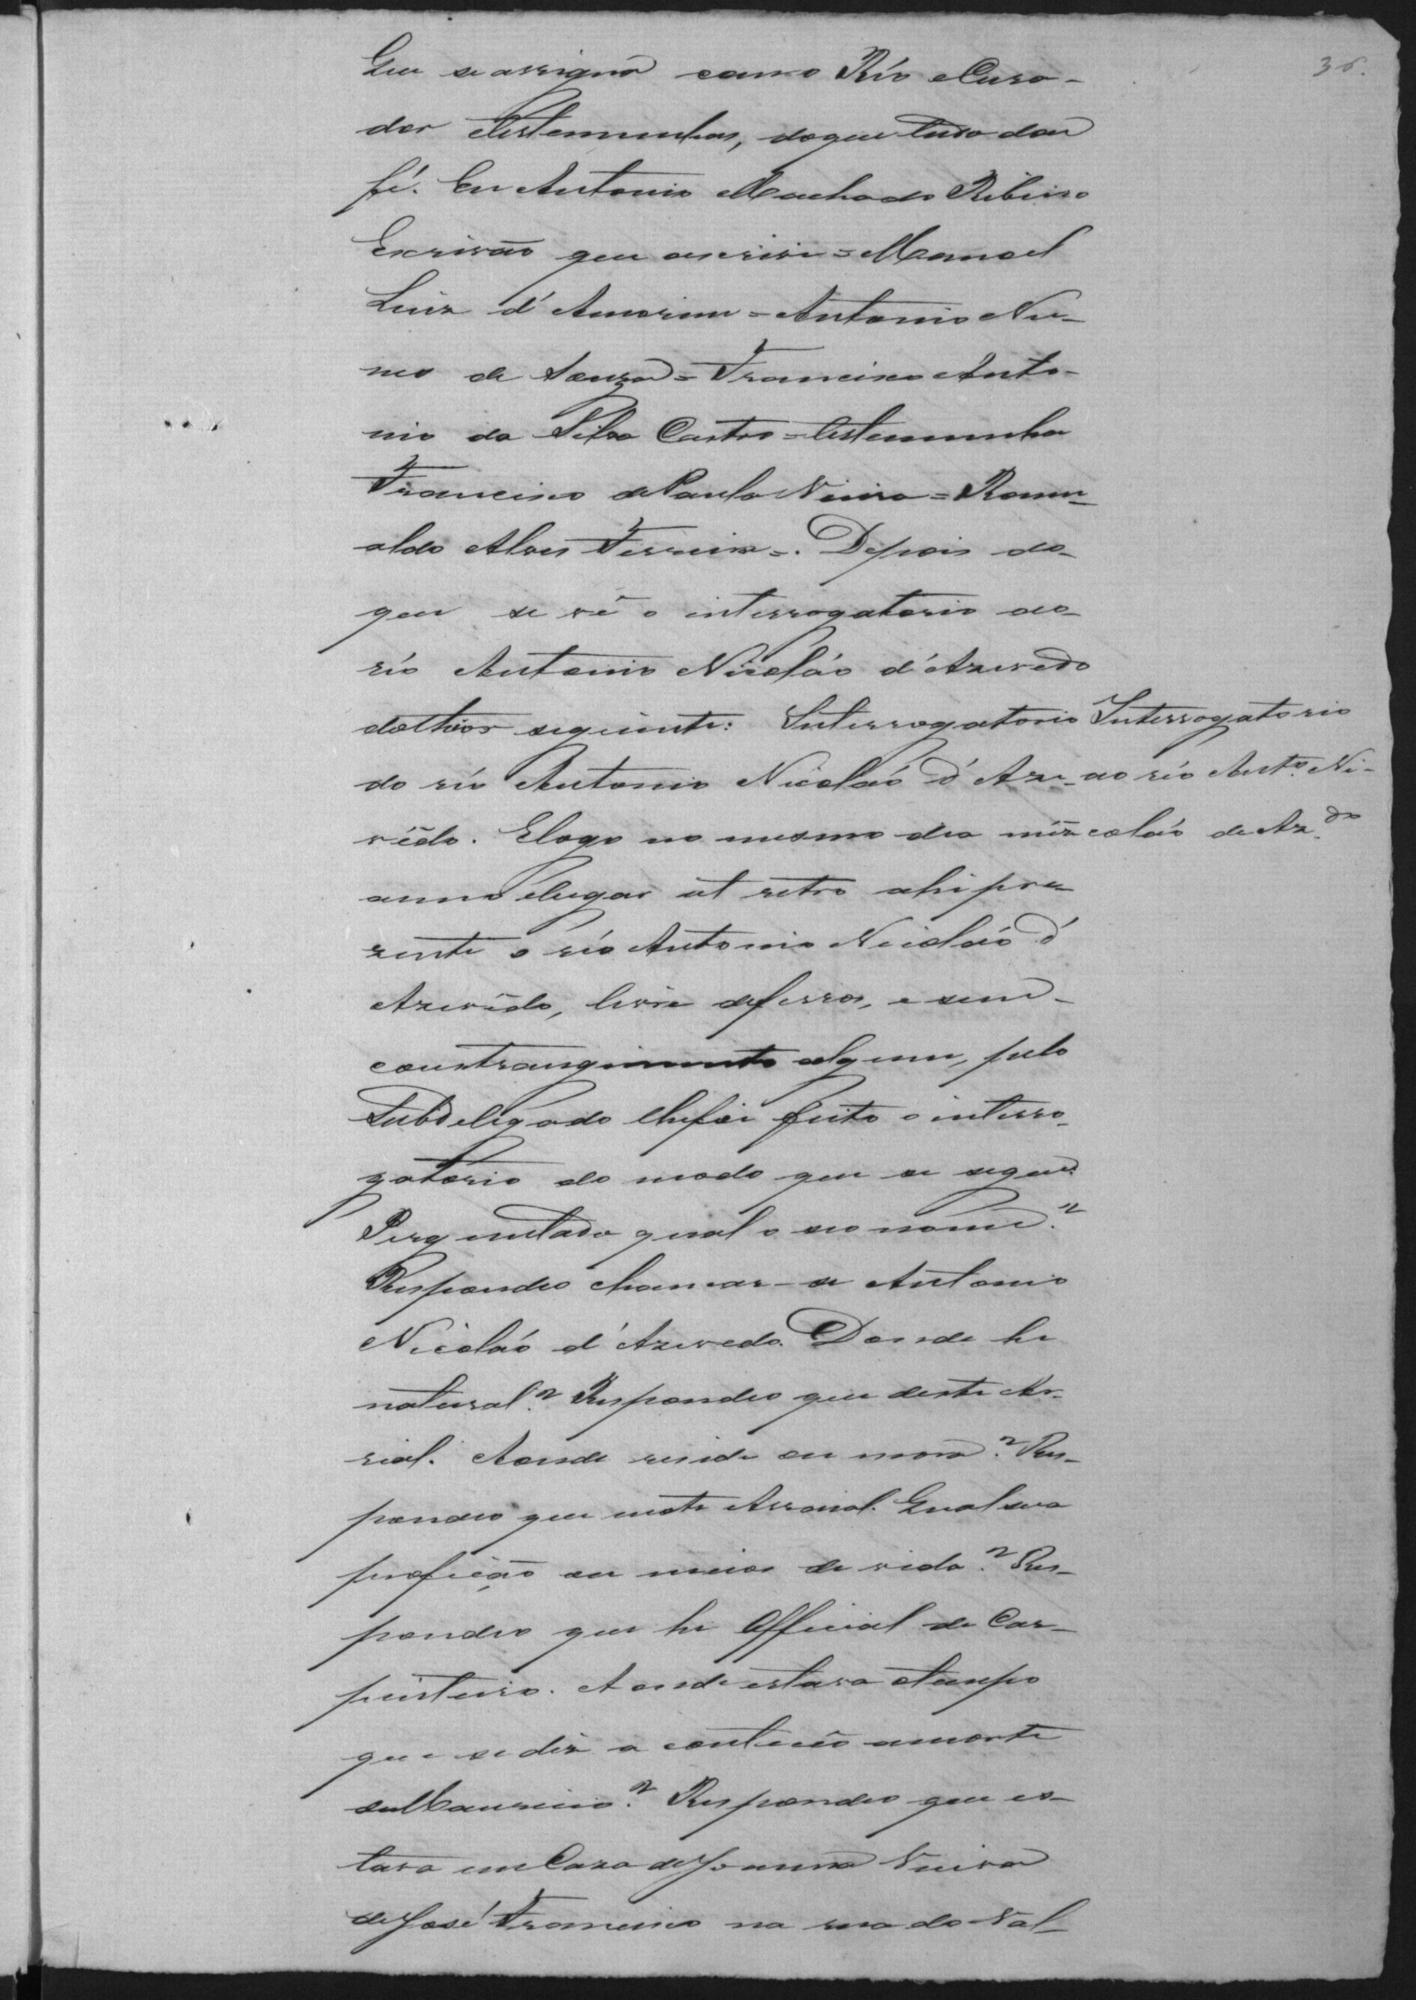 36.
Que se assigna como Réo e Cura-
dor e testemunhas, do que tudo dou
fé. Eu Antonio Machado Ribeiro
Escrivão que escrivi = Manoel
Luiz d'Amorim = Antonio Nu-
nes de Souza = Francisco Anto-
nio da Silva Castro = testemunha
Francisco de Paula Vieira = Romu-
aldo Alves Ferreira =. Depois do
que se vê o interrogatorio ao
réo Antonio Nicoláo d'Azevedo
do theor seguinte: Interrogatorio
do réo Antonio Nicoláo d'Aze-
vêdo. E logo no mesmo dia mêz
anno e lugar ut retro ahi pre-
zente o réo Antonio Nicoláo d'
Azevêdo, livre de ferros, e sem
constrangimento algum, pelo
Subdelegado lhe foi feito o interro-
gatorio do modo que se segue:
Perguntado qual o seo nome?
Respondeo chamar-se Antonio
Nicoláo d'Azevedo. Donde he
natural? Respondeo que deste Ar-
raial. Aonde reside ou mora? Res-
pondeo que neste Arraial. Qual sua
profição ou meios de vida? Res-
pondeo que he Official de Car-
pinteiro. Aonde estava o tempo
que se diz aconteceo a morte
de Mauricio? Respondeo que es-
tava em Caza de Joanna Vieira
de José Francisco na rua do Val-
Interrogatorio
ao réo Ant.o Ni-
coláo de Az.do